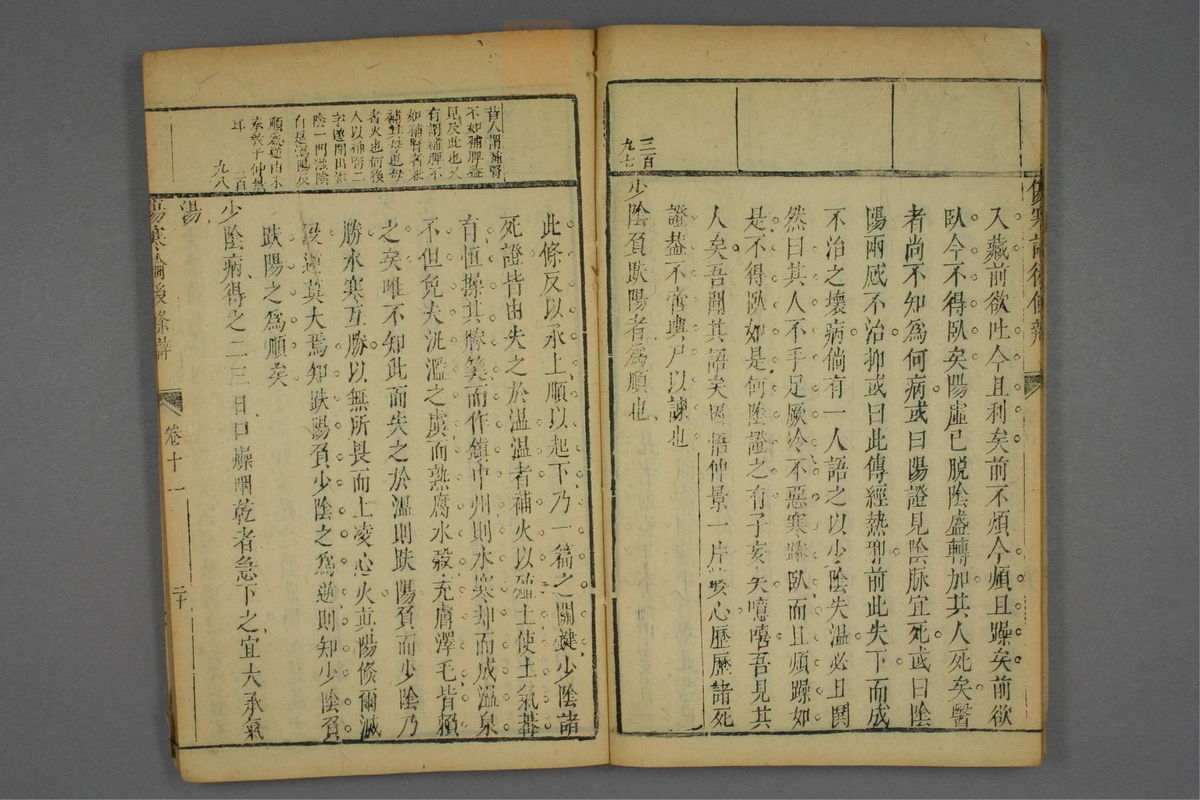 入藏前欲吐今且利矣前不煩今煩且躁矣前欲
臥今不得臥矣陽虛已脫陰盛轉加其人死矣醫
者尚不知為何病或曰陽證見陰脈宜死或曰陰
陽兩感不治抑或曰此傳經熱邪前此失下而成
不治之壞病倘有一人語之以少陰失溫必且鬨
然曰其人不手足厥冷不惡寒踡臥而且煩躁如
是不得臥如是何陰證之有子妄矣噫嘻吾見其
人矣吾聞其語矣因悟仲景一片婆心歷歷諸死
證蓋不啻輿尸以諫也
三百九七
少陰負趺陽者為順也
此條反以承上順以起下乃一篇之關鍵少陰諸
死證皆由失之於溫溫者補火以殖土使土氣蕃
育恒操其勝筭而作鎮中州則水寒却而成溫泉
不但免夫汎濫之虞而熟腐水穀充膚澤毛皆賴
之矣唯不知此而失之於溫則趺陽負而少陰乃
勝水寒互勝以無所畏而上凌心火真陽倐爾滅
沒逆莫大焉知趺陽負少陰之為逆則知少陰負
趺陽之為順矣
三百九八
少陰病得之二三日口燥咽乾者急下之宜大承氣
湯
昔人謂補腎
不如補脾蓋
見及此也又
有謂補脾不
如補腎者兼
補其母也母
者火也何後
人以補腎二
字遂開出滋
陰一門滋陰
自是瀉陽反
順為逆由未
奉教于仲景
耳
傷寒論後條辨
卷十一
二十